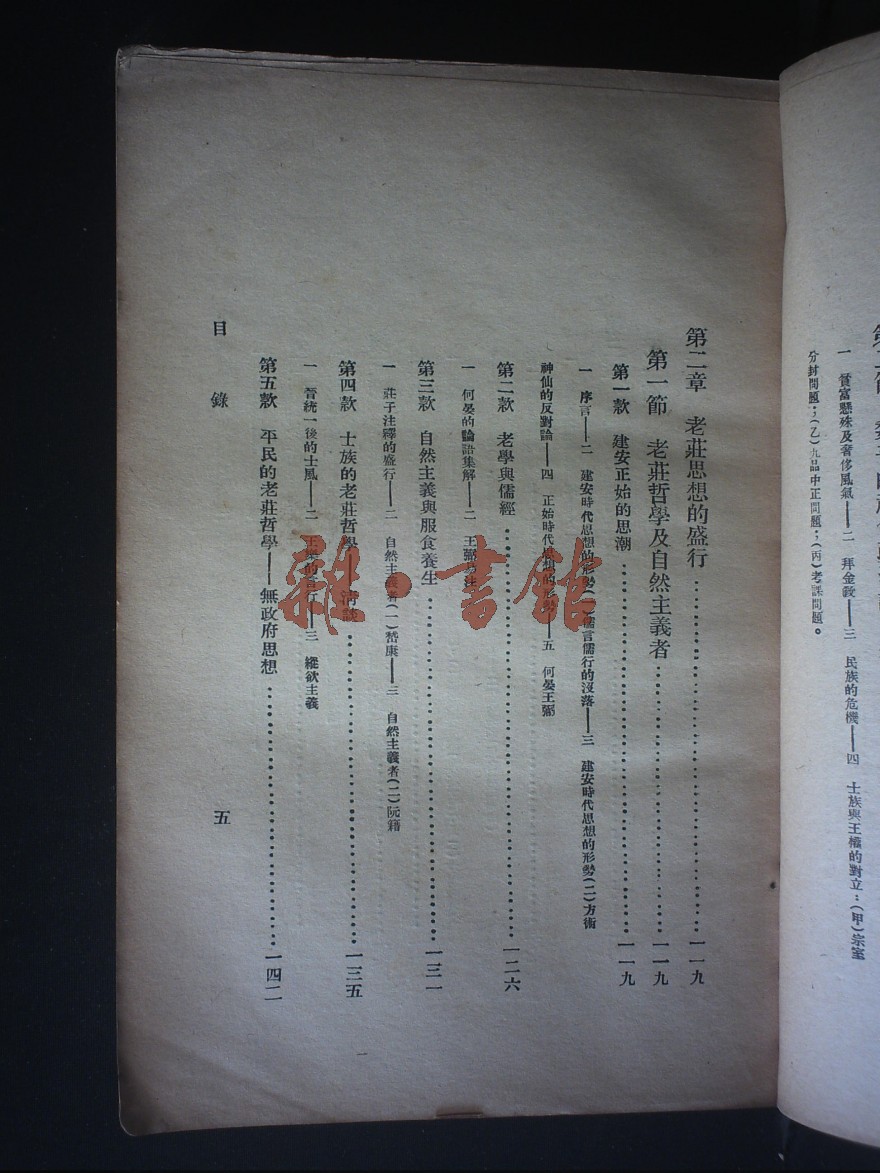 一　貧富懸殊及奢侈風氣——二　拜金教——三　民族的危機——四　士族與王權的對立：（甲）宗室
分封問題；（乙）九品中正問題；（丙）考課問題。
第二章　老莊思想的盛行……一一九
第一節　老莊哲學及自然主義者……一一九
第一款　建安正始的思潮……一一九
一　序言——二　建安時代思想的形勢（一）儒言儒行的沒落——三　建安時代思想的形勢（二）方術
神仙的反對論——四　正始時代思想的形勢——五　何晏王弼
第二款　老學與儒經……一二六
一　何晏的論語集解——二　王弼易注
第三款　自然主義與服食養生……一三一
一　莊子注釋的盛行——二　自然主義者（一）嵇康——三　自然主義者（二）阮籍
第四款　士族的老莊哲學——清談……一三五
一　晉統一後的士風——二　王樂的言行——三　縱欲主義
第五款　平民的老莊哲學——無政府思想……一四二
目錄　五
雜·書館